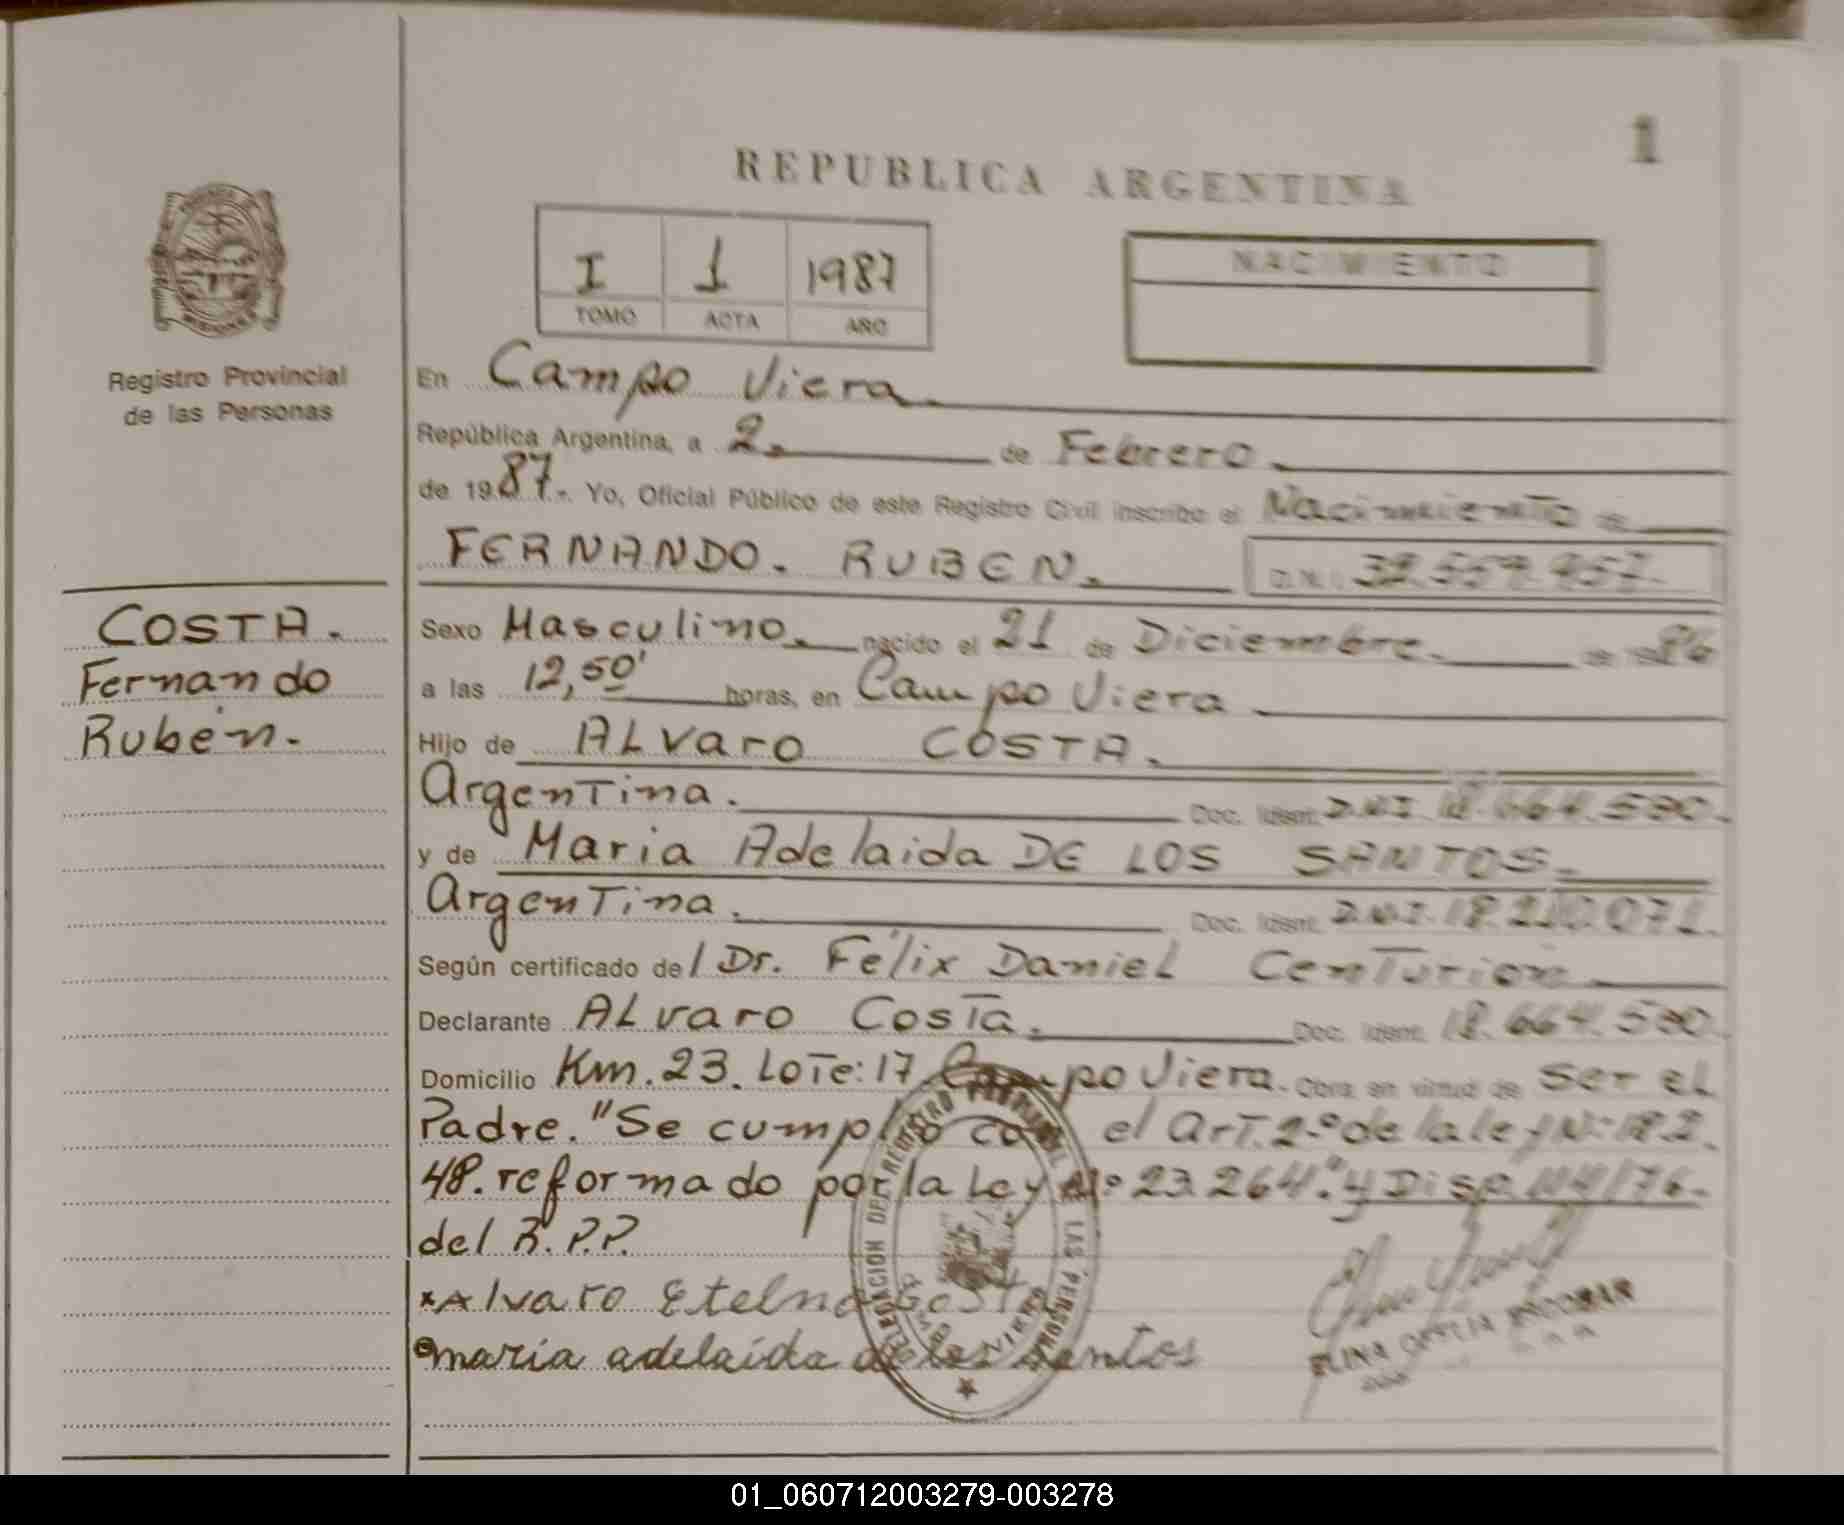 1
REPUBLICA ARGENTINA
I 1 1987
TOMO ACTA AÑO
NACIMIENTO
Registro Provincial
de las Personas
COSTA.
Fernando
Rubén.
En Campo Viera.
República Argentina, a 2. de Febrero.
de 1987.- Yo, Oficial Público de este Registro Civil inscribo el Nacimiento de
FERNANDO. RUBEN. D.N.I.
Sexo Masculino. nacido el 21 de Diciembre. de 1986
a las 12,50' horas, en Campo Viera
Hijo de ALvaro COSTA.
Argentina. Doc. Ident. D.N.I. 18.664.590.
y de Maria Adelaida DE LOS SANTOS.
Argentina. Doc. Ident. D.N.I. 18.210.071.
Según certificado del Dr. Félix Daniel Centurión
Declarante ALvaro Costa. Doc. Ident. 18.664.590.
Domicilio Km. 23. Lote: 17 Campo Viera. Obra en virtud de ser el
Padre. "Se cumplió con el Art. 2º de la ley Nº 18.2
48. reformado por la Ley Nº 23.264." y Disp. 114/76.
del R.P.P.
Alvaro Costa
maria adelaida de los santos
DELEGACION DEL REGISTRO PROVINCIAL DE LAS PERSONAS
ESCOBAR
01_060712003279-003278